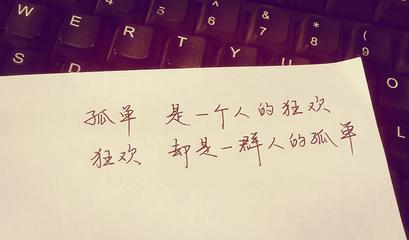 W E R T Y U
S D
5 ^ 6 & 7 * 8 ( 9
O
L
孤单 是一个人的狂欢
狂欢 却是一群人的孤单